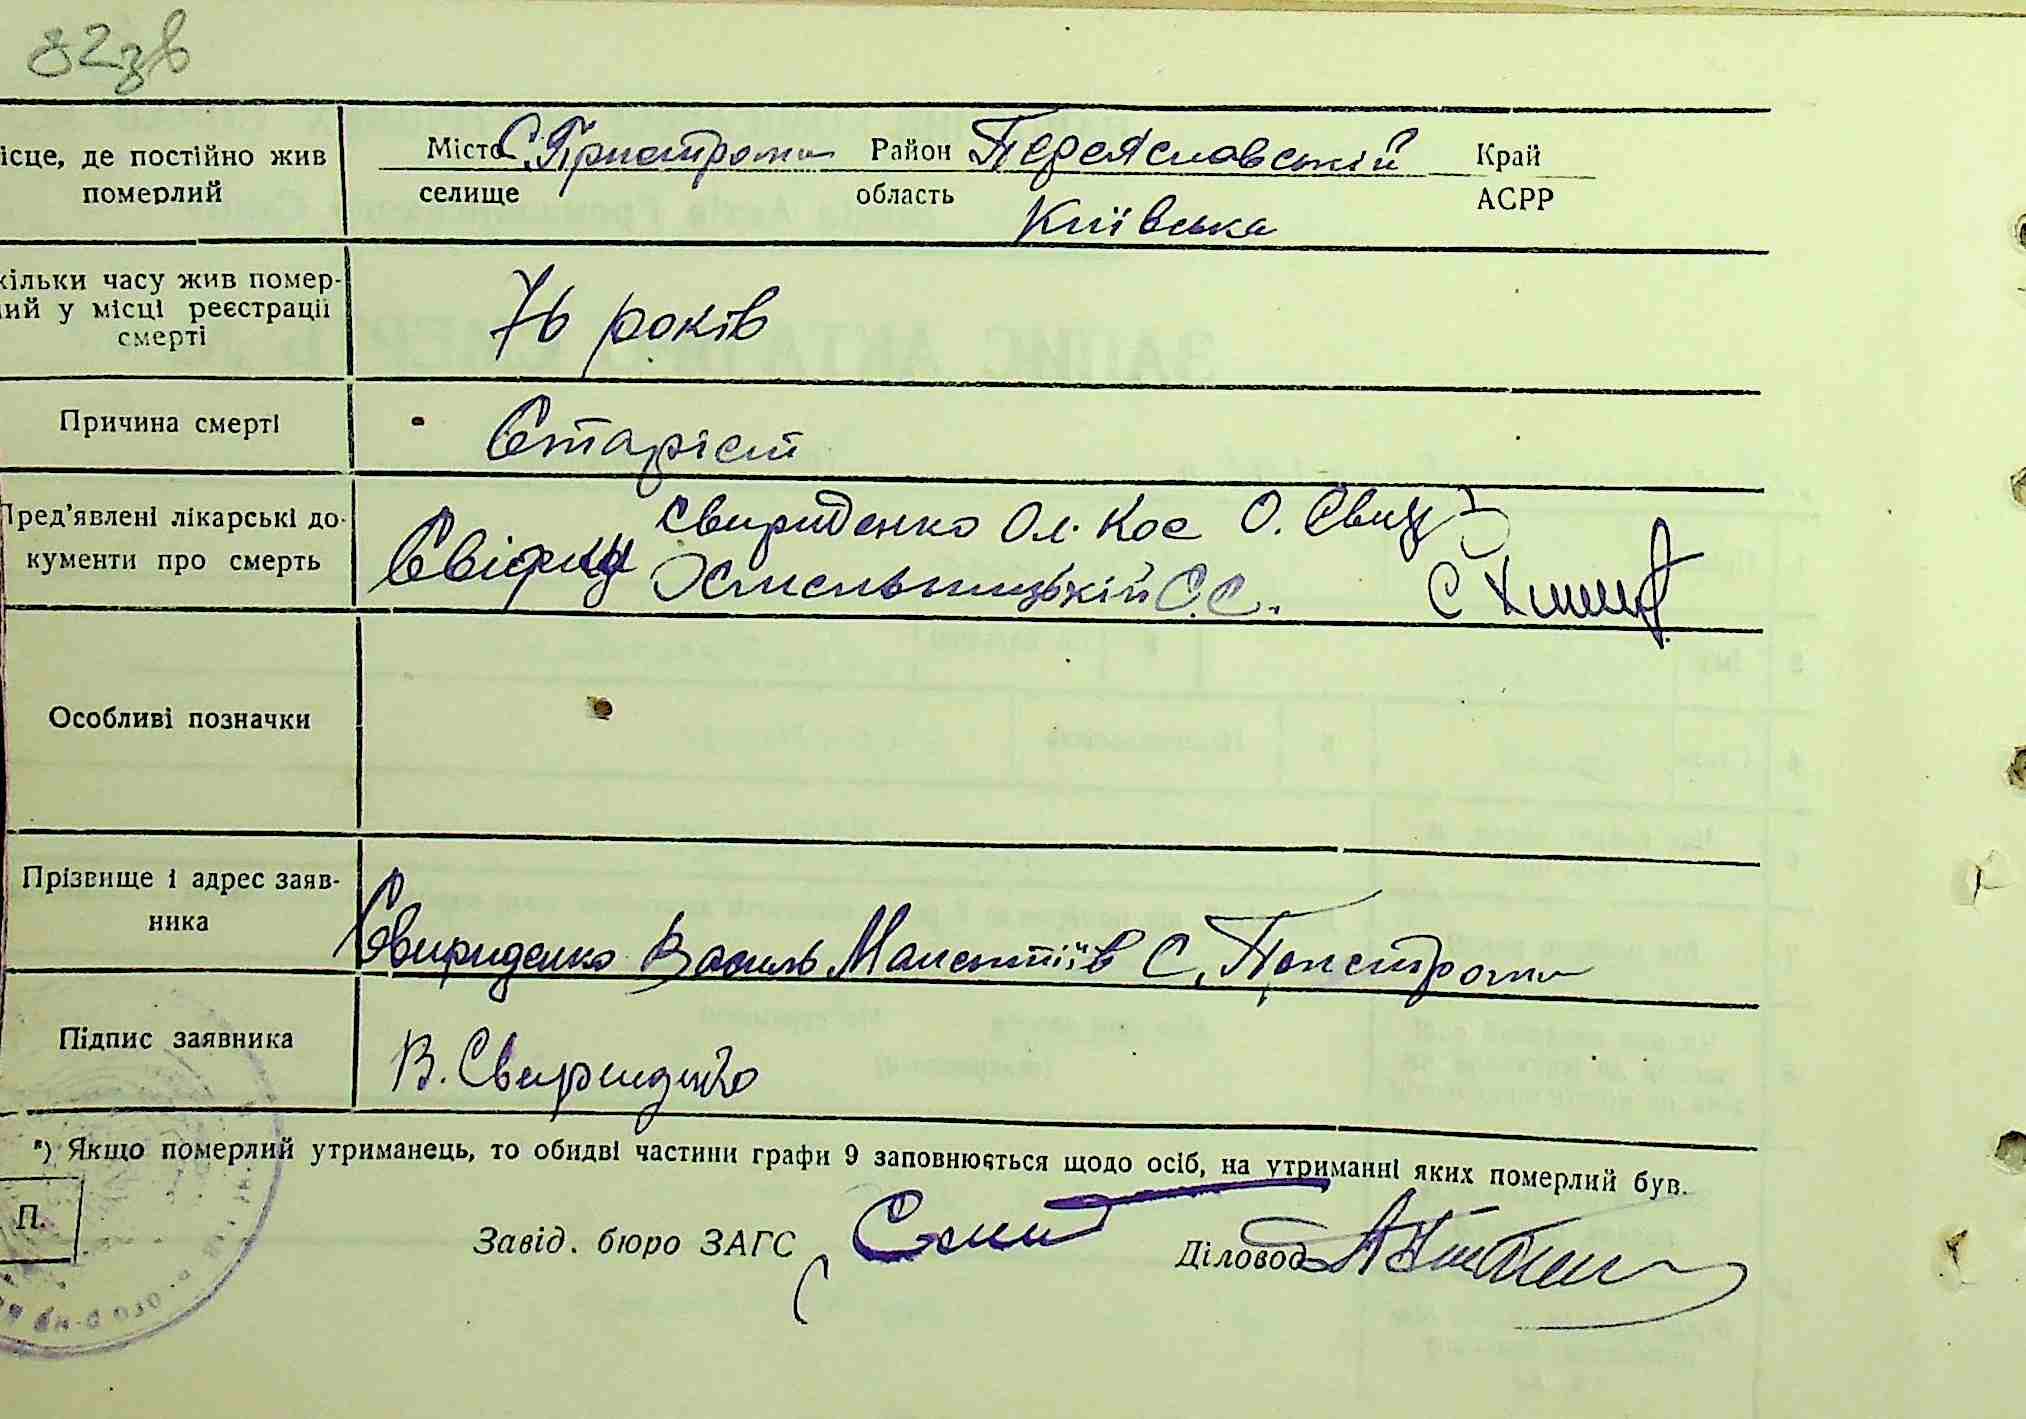 82зв
ісце, де постійно жив
померлий
Місто С. Пристроми Район Переяславській Край
селище область АСРР
Київська
кільки часу жив помер-
ий у місці реєстрації
смерті
76 років
Причина смерті
Старіст
Пред'явлені лікарські до-
кументи про смерть
Свириденко Ол. Кос О. Свир
Свідки Хмельницькій С. С.
Особливі позначки
Прізвище і адрес заяв-
ника
Свириденко Василь С. Пристроми
Підпис заявника
В. Свириденко
*) Якщо померлий утриманець, то обидві частини графи 9 заповнюється щодо осіб, на утриманні яких померлий був.
П.
Завід. бюро ЗАГС
Діловод